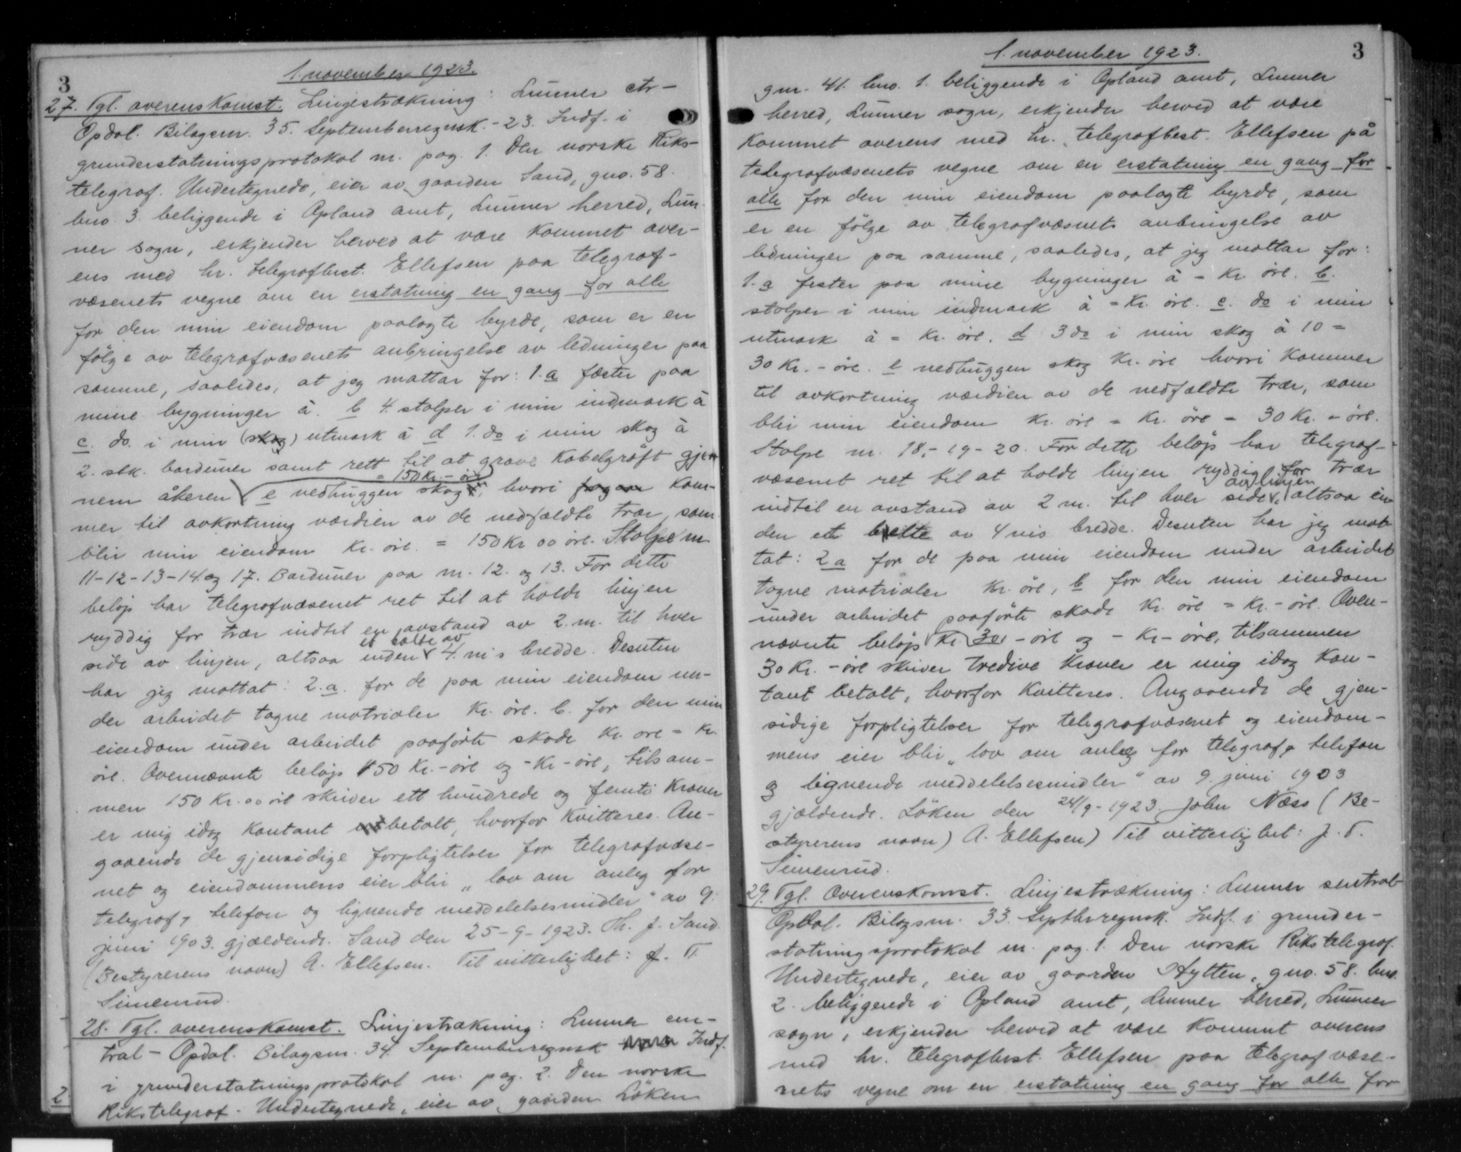 3
1 november 1923.
27. Tgl. overenskomst. Linjestrækning: Lunner ctr-
Opdal. Bilagsnr. 35. Septemberregnsk. - 23. Indf. i
grunderstatningsprotokol nr. pag. 1. Den norske Riks-
telegraf. Undertegnede, eier av gaarden Sand, gno. 58.
bno 3. beliggende i Opland amt, Lunner herred, Lun-
ner sogn, erkjender herved at være kommet over-
ens med hr. telegrafbest. Ellefsen paa telegraf-
væsenets vegne om en erstatning en gang for alle
for den min eiendom paalagte byrde, som er en
følge av telegrafvæsenets anbringelse av ledninger paa
samme, saaledes, at jeg mottar for: 1.a fæster paa
mine bygninger à. b 4. stolper i min indmark à
c. do. i min (skog) utmark à d 1. do i min skog à
2. stk. barduner samt rett til at grave kabelgrøft gjen
= 150 Kr. - øre
nem åkeren e vedhuggen skog, hvori kom-
mer til avkortning værdien av de nedfældte trær, som
blir min eiendom Kr. øre. = 150 Kr 00 øre. Stolpe nr
11-12-13-14 og 17. Barduner paa nr. 12. og 13. For dette
beløp har telegrafvæsenet ret til at holde linjen
ryddig for trær indtil en avstand av 2. m. til hver
et belte av
side av linjen, altsaa inden 4. m's bredde. Desuten
har jeg mottat: 2.a. for de paa min eiendom un-
der arbeidet tagne matrialer Kr. øre. b. for den min
eiendom under arbeidet paaførte skade Kr. øre = Kr.
øre. Ovennævnte beløp 150 Kr. - øre og - Kr - øre, tilsam-
men 150 Kr. 00 øre skriver ett hundrede og femti Kroner
er mig idag kontant betalt, hvorfor kvitteres. An-
gaaende de gjensidige forpligtelser for telegrafvæse-
net og eiendommens eier blir „lov om anleg for
telegraf, telefon og lignende meddelelsesmidler" av 9.
juni 1903. gjældende. Sand den 25-9-1923. Th. J. Sand
(Bestyrerens navn) A. Ellefsen. Til vitterlighet: J. T.
Simenrud.
28. Tgl. overenskomst. Linjestrækning: Lunner cen-
tral - Opdal. Bilagsnr. 34 Septemberregnsk Indf.
i grunderstatningsprotokol nr. pag. 2. Den norske
Rikstelegraf. Undertegnede, eier av gaarden Løken
2
1 november 1923.
3
gnr. 41. bno. 1. beliggende i Opland amt, Lunner
herred, Lunner sogn, erkjender herved at være
kommet overens med hr. telegrafbest. Ellefsen på
telegrafvæsenets vegne om en erstatning en gang for
alle for den min eiendom paalagte byrde, som
er en følge av telegrafvæsenets anbringelse av
ledninger paa samme, saaledes, at jeg mottar for:
1.a fæster paa mine bygninger à - Kr øre. b.
stolper i min indmark à = Kr. øre. c. do i min
utmark à = Kr. øre. d 3 do i min skog à 10 =
30 Kr. - øre. e nedhuggen skog Kr. øre hvori kommer
til avkortning værdien av de nedfældte trær, som
blir min eiendom Kr. øre = Kr. øre = 30 Kr. - øre.
Stolpe nr. 18.-19-20. For dette beløp har telegraf-
væsenet ret til at holde linjen ryddig for trær
av linjen
indtil en avstand av 2 m. til hver side, altsaa in-
den et belte av 4 m's bredde. Desuten har jeg mot-
tat: 2a for de paa min eiendom under arbeidet
tagne matrialer Kr. øre, b for den min eiendom
under arbeidet paaførte skade Kr. øre = Kr. - øre. Oven-
nævnte beløp Kr 30 - øre og - Kr - øre, tilsammen
30 Kr. - øre skriver tredive Kroner er mig idag kon-
tant betalt, hvorfor kvitteres. Angaaende de gjen-
sidige forpligtelser for telegrafvæsenet og eiendom-
mens eier blir „lov om anleg for telegraf, telefon
og lignende meddelelsesmidler" av 9. juni 1903
gjældende. Løken den 24/9-1923. John Næss (Be-
styrerens navn) A. Ellefsen) Til vitterlighet: J. T.
Simenrud.
29. Tgl. Overenskomst. Linjestrækning: Lunner sentral-
Opdal. Bilagsnr. 33 Septbr.regnsk. Indf. i grunder-
statningsprotokol nr. pag. 1. Den norske Rikstelegraf.
Undertegnede, eier av gaarden Hytten, gno. 58. bno.
2. beliggende i Opland amt, Lunner herred, Lunner
sogn, erkjender herved at være kommet overens
med hr. telegrafbest. Ellefsen paa telegrafvæse-
nets vegne om en erstatning en gang for alle for